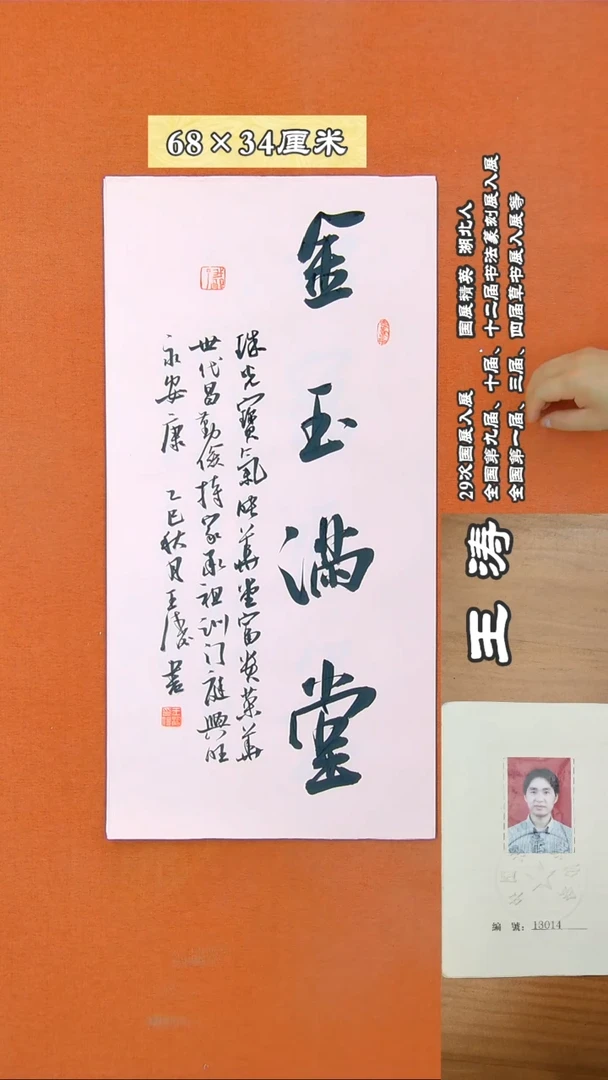 68×34厘米
金玉满堂
珠光寶氣映華堂富貴榮華
世代昌勤儉持家承祖訓门庭興旺
永安康 乙巳秋月王濤書
29次国展入展 国展精英 湖北人
全国第九届、十届、十二届书法篆刻展入展
全国第一届、三届、四届草书展入展等
王涛
編號：13014